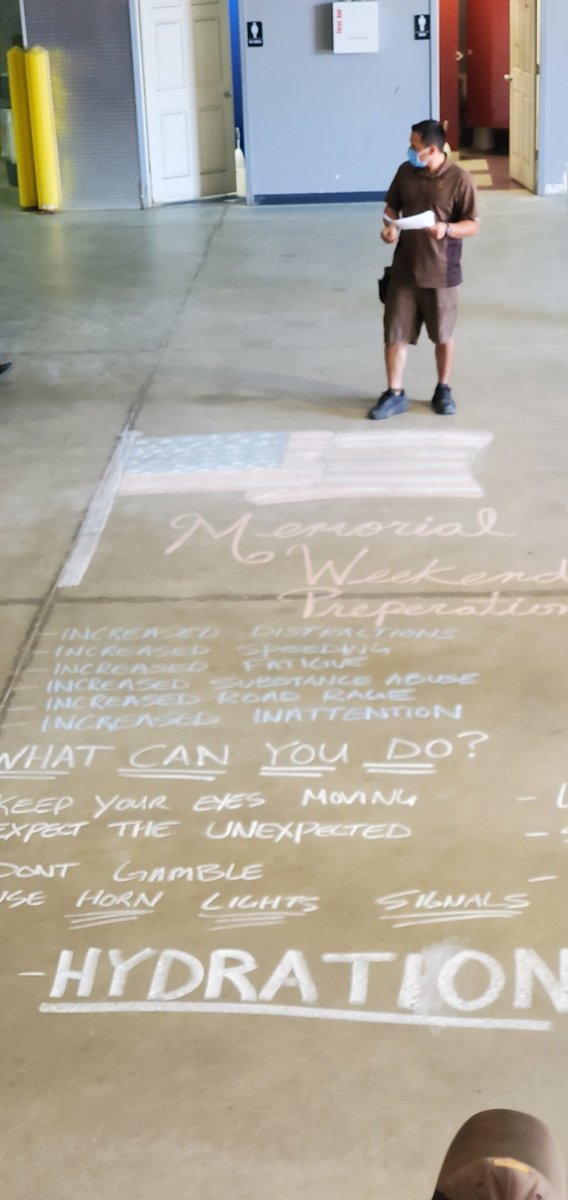 First Aid
Memorial
Weekend
Preperation
- INCREASED DISTRACTIONS
- INCREASED SPEEDING
- INCREASED FATIGUE
- INCREASED SUBSTANCE ABUSE
- INCREASED ROAD RAGE
- INCREASED INATTENTION
WHAT CAN YOU DO?
KEEP YOUR EYES MOVING
EXPECT THE UNEXPECTED
DONT GAMBLE
USE HORN LIGHTS SIGNALS
- HYDRATION